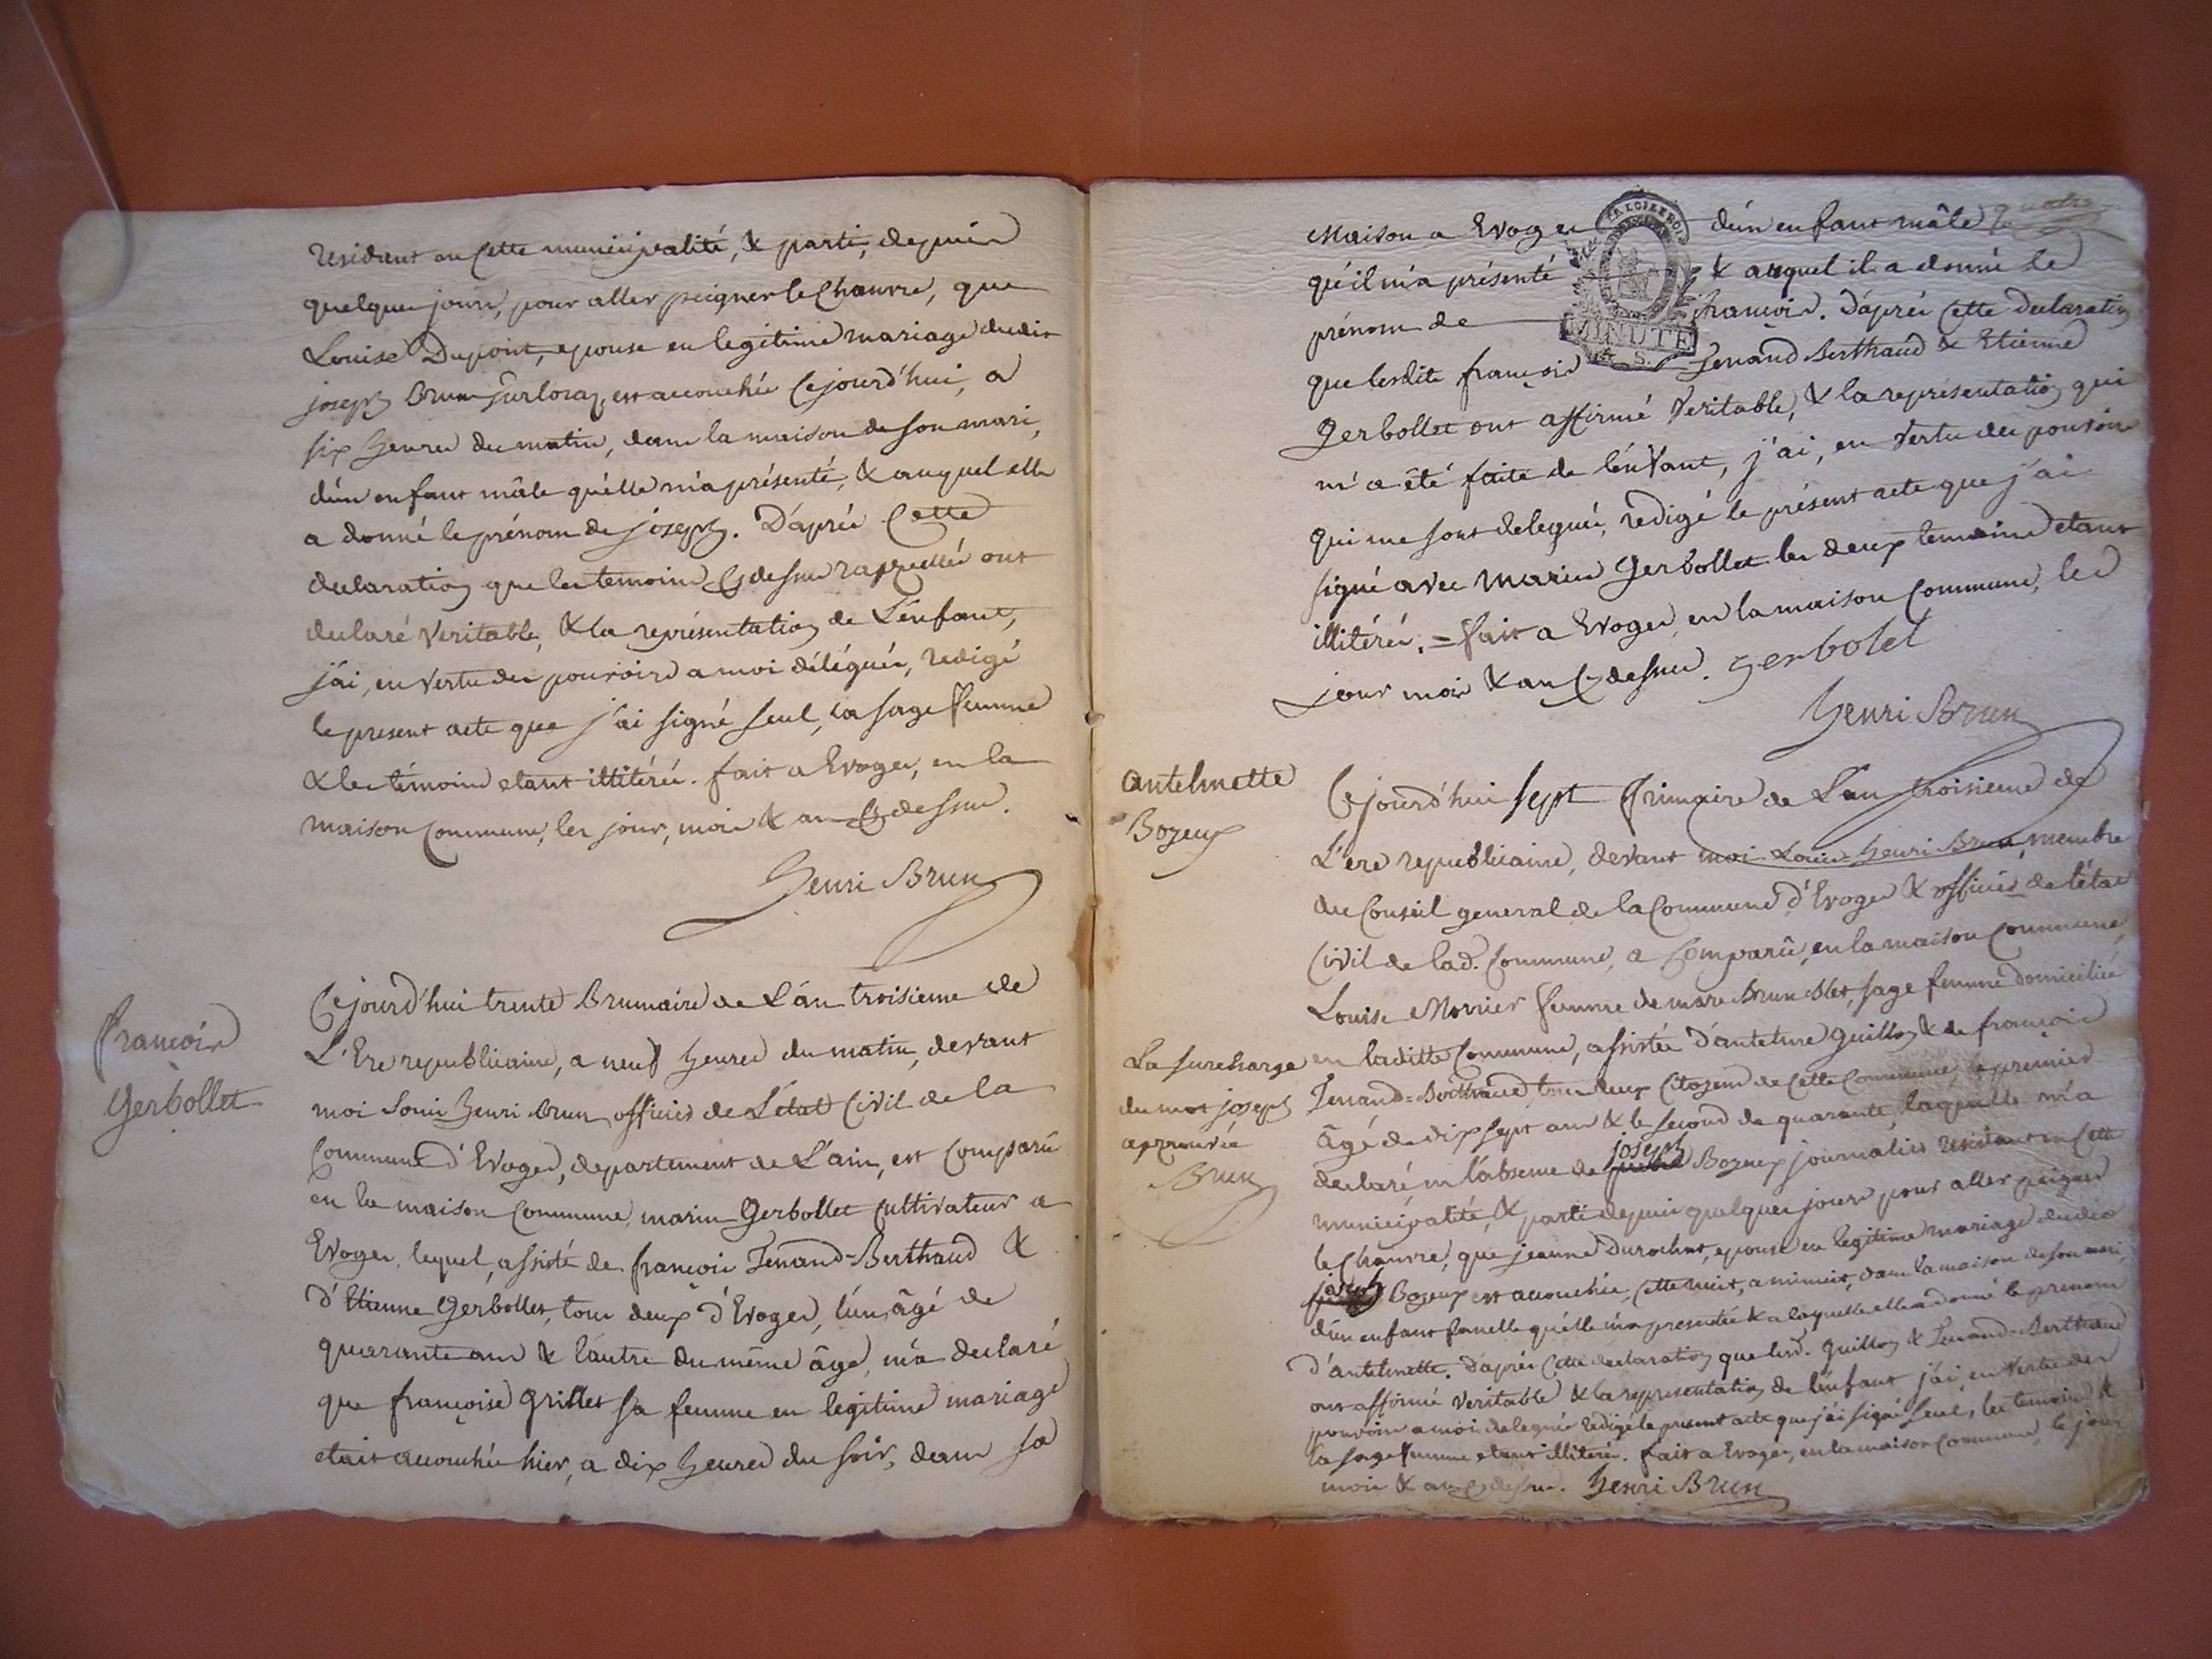 residant en cette municipalité, & parti, depuis
quelques jours, pour aller peigner le chanvre, que
Louise Dupont, epouse en legitime mariage dudit
joseph Brun-Surloraz, est accouchée Cejourd'hui, a
six heures du matin, dans la maison de son mari,
d'un enfant mâle qu'elle m'a présenté, & auquel elle
a donné le prénom de joseph. D'après Cette
declaration que les temoins Cy dessus rappellés ont
declaré veritable, & la représentation de L'enfant,
j'ai, en vertu des pouvoirs a moi délégués, redigé
le present acte que j'ai signé seul, la sage femme
& les témoins etant illitérés. fait a Evoges, en la
maison Commune, les jour, mois & an Cy dessus.
Henri Brun
françois
Gerbollet
Cejourd'hui trente Brumaire de L'an troisieme de
L'Ere republicaine, a neuf heures du matin, devant
moi Louis henri Brun officier de L'état Civil de la
Commune d'Evoges, departement de L'ain, est Comparû
en la maison Commune, marin Gerbollet Cultivateur a
Evoges, lequel, assisté de françois Tenand-Berthaud &
d'Etienne Gerbollet, tous deux d'Evoges, l'un âgé de
quarante ans & l'autre du même âge, m'a declaré
que françoise Grillet sa femme en legitime mariage
etait accouchée hier, a dix heures du soir, dans sa
Maison a Evoges d'un enfant mâle quatre
qu'il m'a présenté & auquel il a donné le
prénom de françois. D'après Cette declaration
MINUTE
que lesdits françois Tenand Berthaud & Etienne
Gerbollet ont affirmé veritable, & la representation qui
m'a été faite de l'enfant, j'ai, en vertu des pouvoirs
qui me sont delegués, redigé le présent acte que j'ai
signé avec Marin Gerbollet les deux temoins etant
illitérés. = fait a Evoges, en la maison Commune, les
jour mois & an Cy dessus. Gerbolet
Henri Brun
antelmette
Bozeux
Cejourd'hui sept frimaire de L'an troisieme de
L'ere republicaine, devant moi Louis-henri Brun, membre
du Conseil general de la Commune d'Evoges & officier de l'état
Civil de lad. Commune, a Comparû, en la maison Commune,
Louise Monier femme de marc Brun-blet, sage femme domiciliée
en laditte Commune, assistée d'antelme Guillon & de françois
Tenand-Berthaud tous deux Citoyens de Cette Commune, le premier
âgé de dix sept ans & le second de quarante, laquelle m'a
declaré en l'absence de joseph Bozeux journalier residant en Cette
municipalité, & parti depuis quelques jours pour aller peigner
le chanvre, que jeanne Durochat, epouse en legitime mariage dudit
joseph Bozeux est accouchée, Cette nuit, a minuit, dans la maison de son mari,
d'un enfant femelle qu'elle m'a presentée & a laquelle elle a donné le prenom
d'antelmette. D'après Cette declaration que lesd. Guillon & Tenand-Berthaud
ont affirmé veritable & la representation de l'enfant j'ai, en vertu des
pouvoirs a moi delegués redigé le present acte que j'ai signé seul, les temoins &
la sage femme etant illiterés. fait a Evoges, en la maison Commune, le jour
mois & an Cy dessus. Henri Brun
La surcharge
du mot joseph
approuvée
Brun